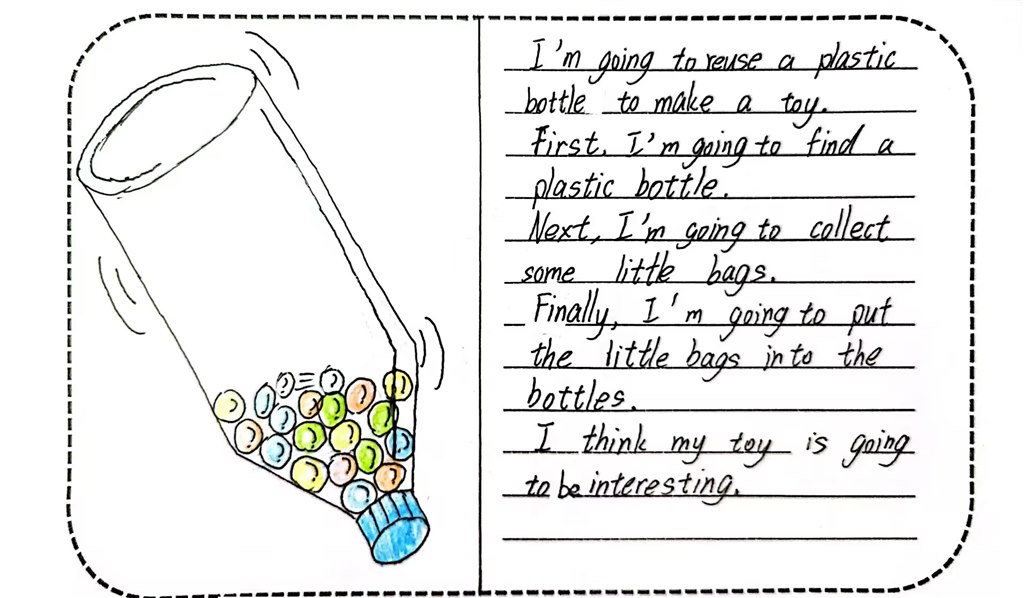 I'm going to reuse a plastic
bottle to make a toy.
First, I'm going to find a
plastic bottle.
Next, I'm going to collect
some little bags.
Finally, I'm going to put
the little bags into the
bottles.
I think my toy is going
to be interesting.